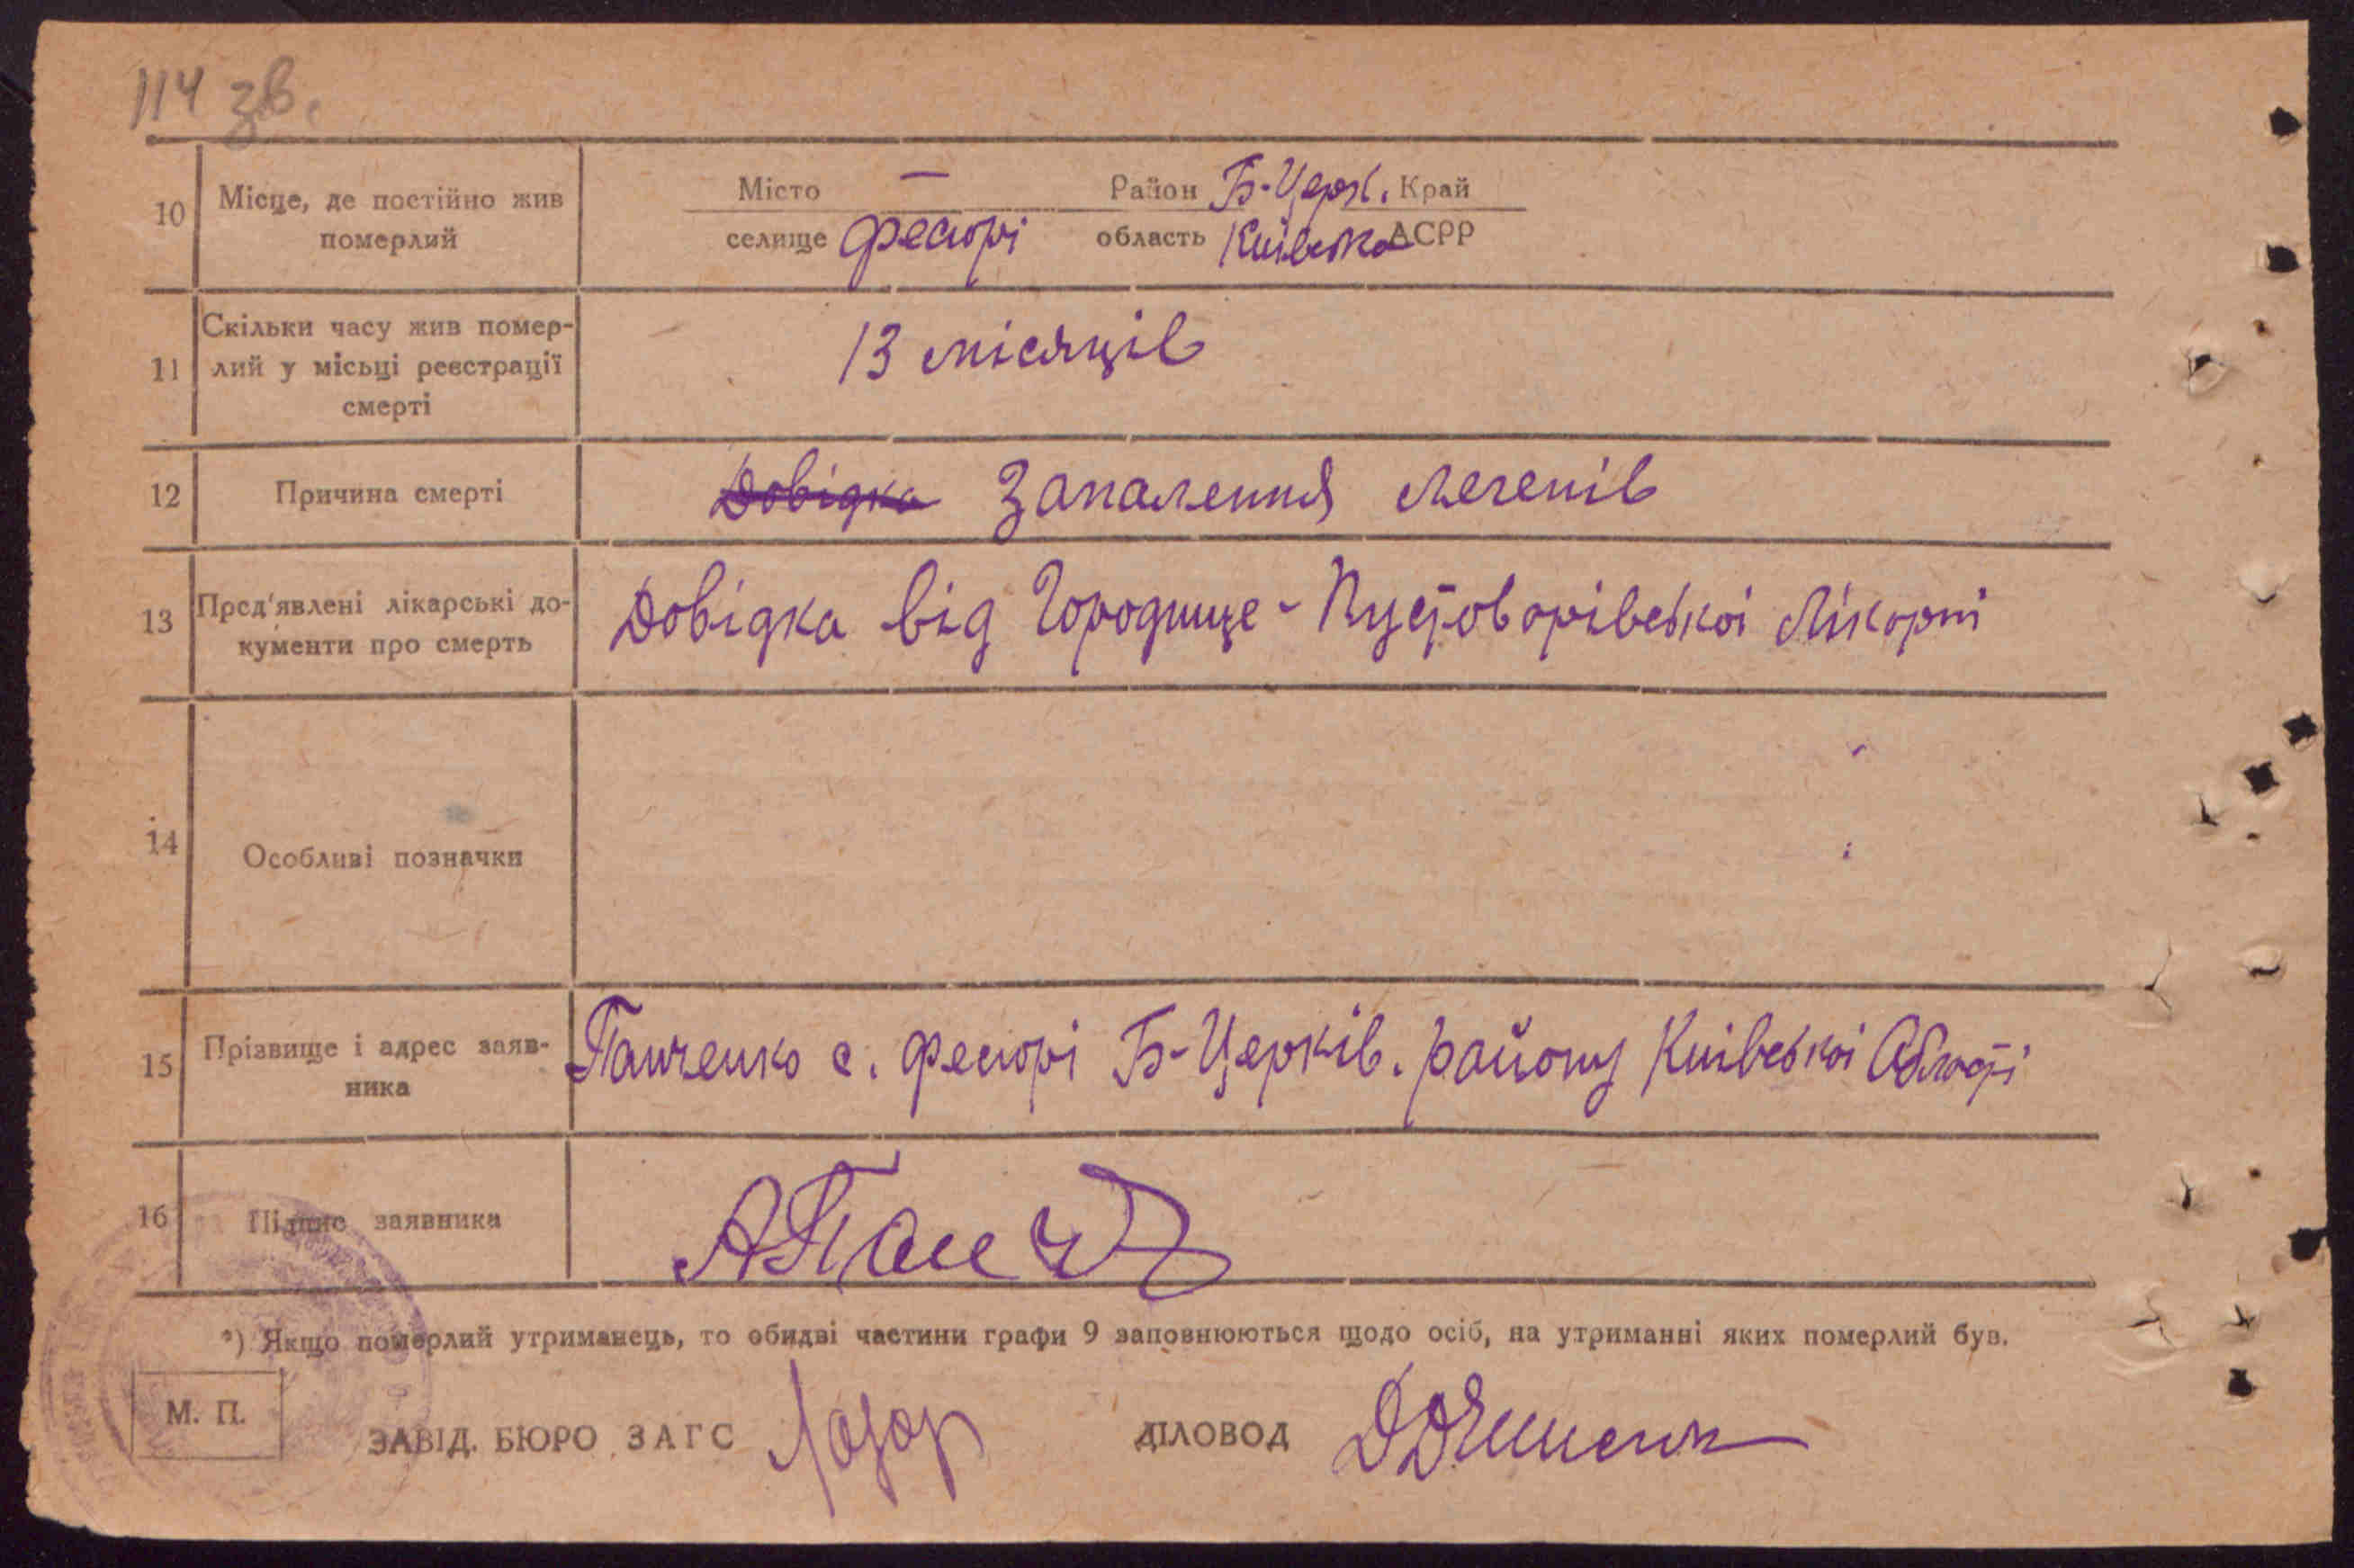 114 зв.
10 Місце, де постійно жив померлий
Місто — Район Б-Церк. Край
селище Фесюрі область Київська АСРР
11 Скільки часу жив помер-
лий у місьці реєстрації
смерті
13 місяців
12 Причина смерті Довідка Запалення легенів
13 Пред'явлені лікарські до-
кументи про смерть
Довідка від Городище-Пустоварівської Лікарні
14 Особливі позначки
15 Прізвище і адрес заяв-
ника
Панченко с. Фесюрі Б-Церків. району Київської Області
16 Підпис заявника
*) Якщо померлий утриманець, то обидві частини графи 9 заповнюються щодо осіб, на утриманні яких померлий був.
М. П.
ЗАВІД. БЮРО ЗАГС Лазар ДІЛОВОД